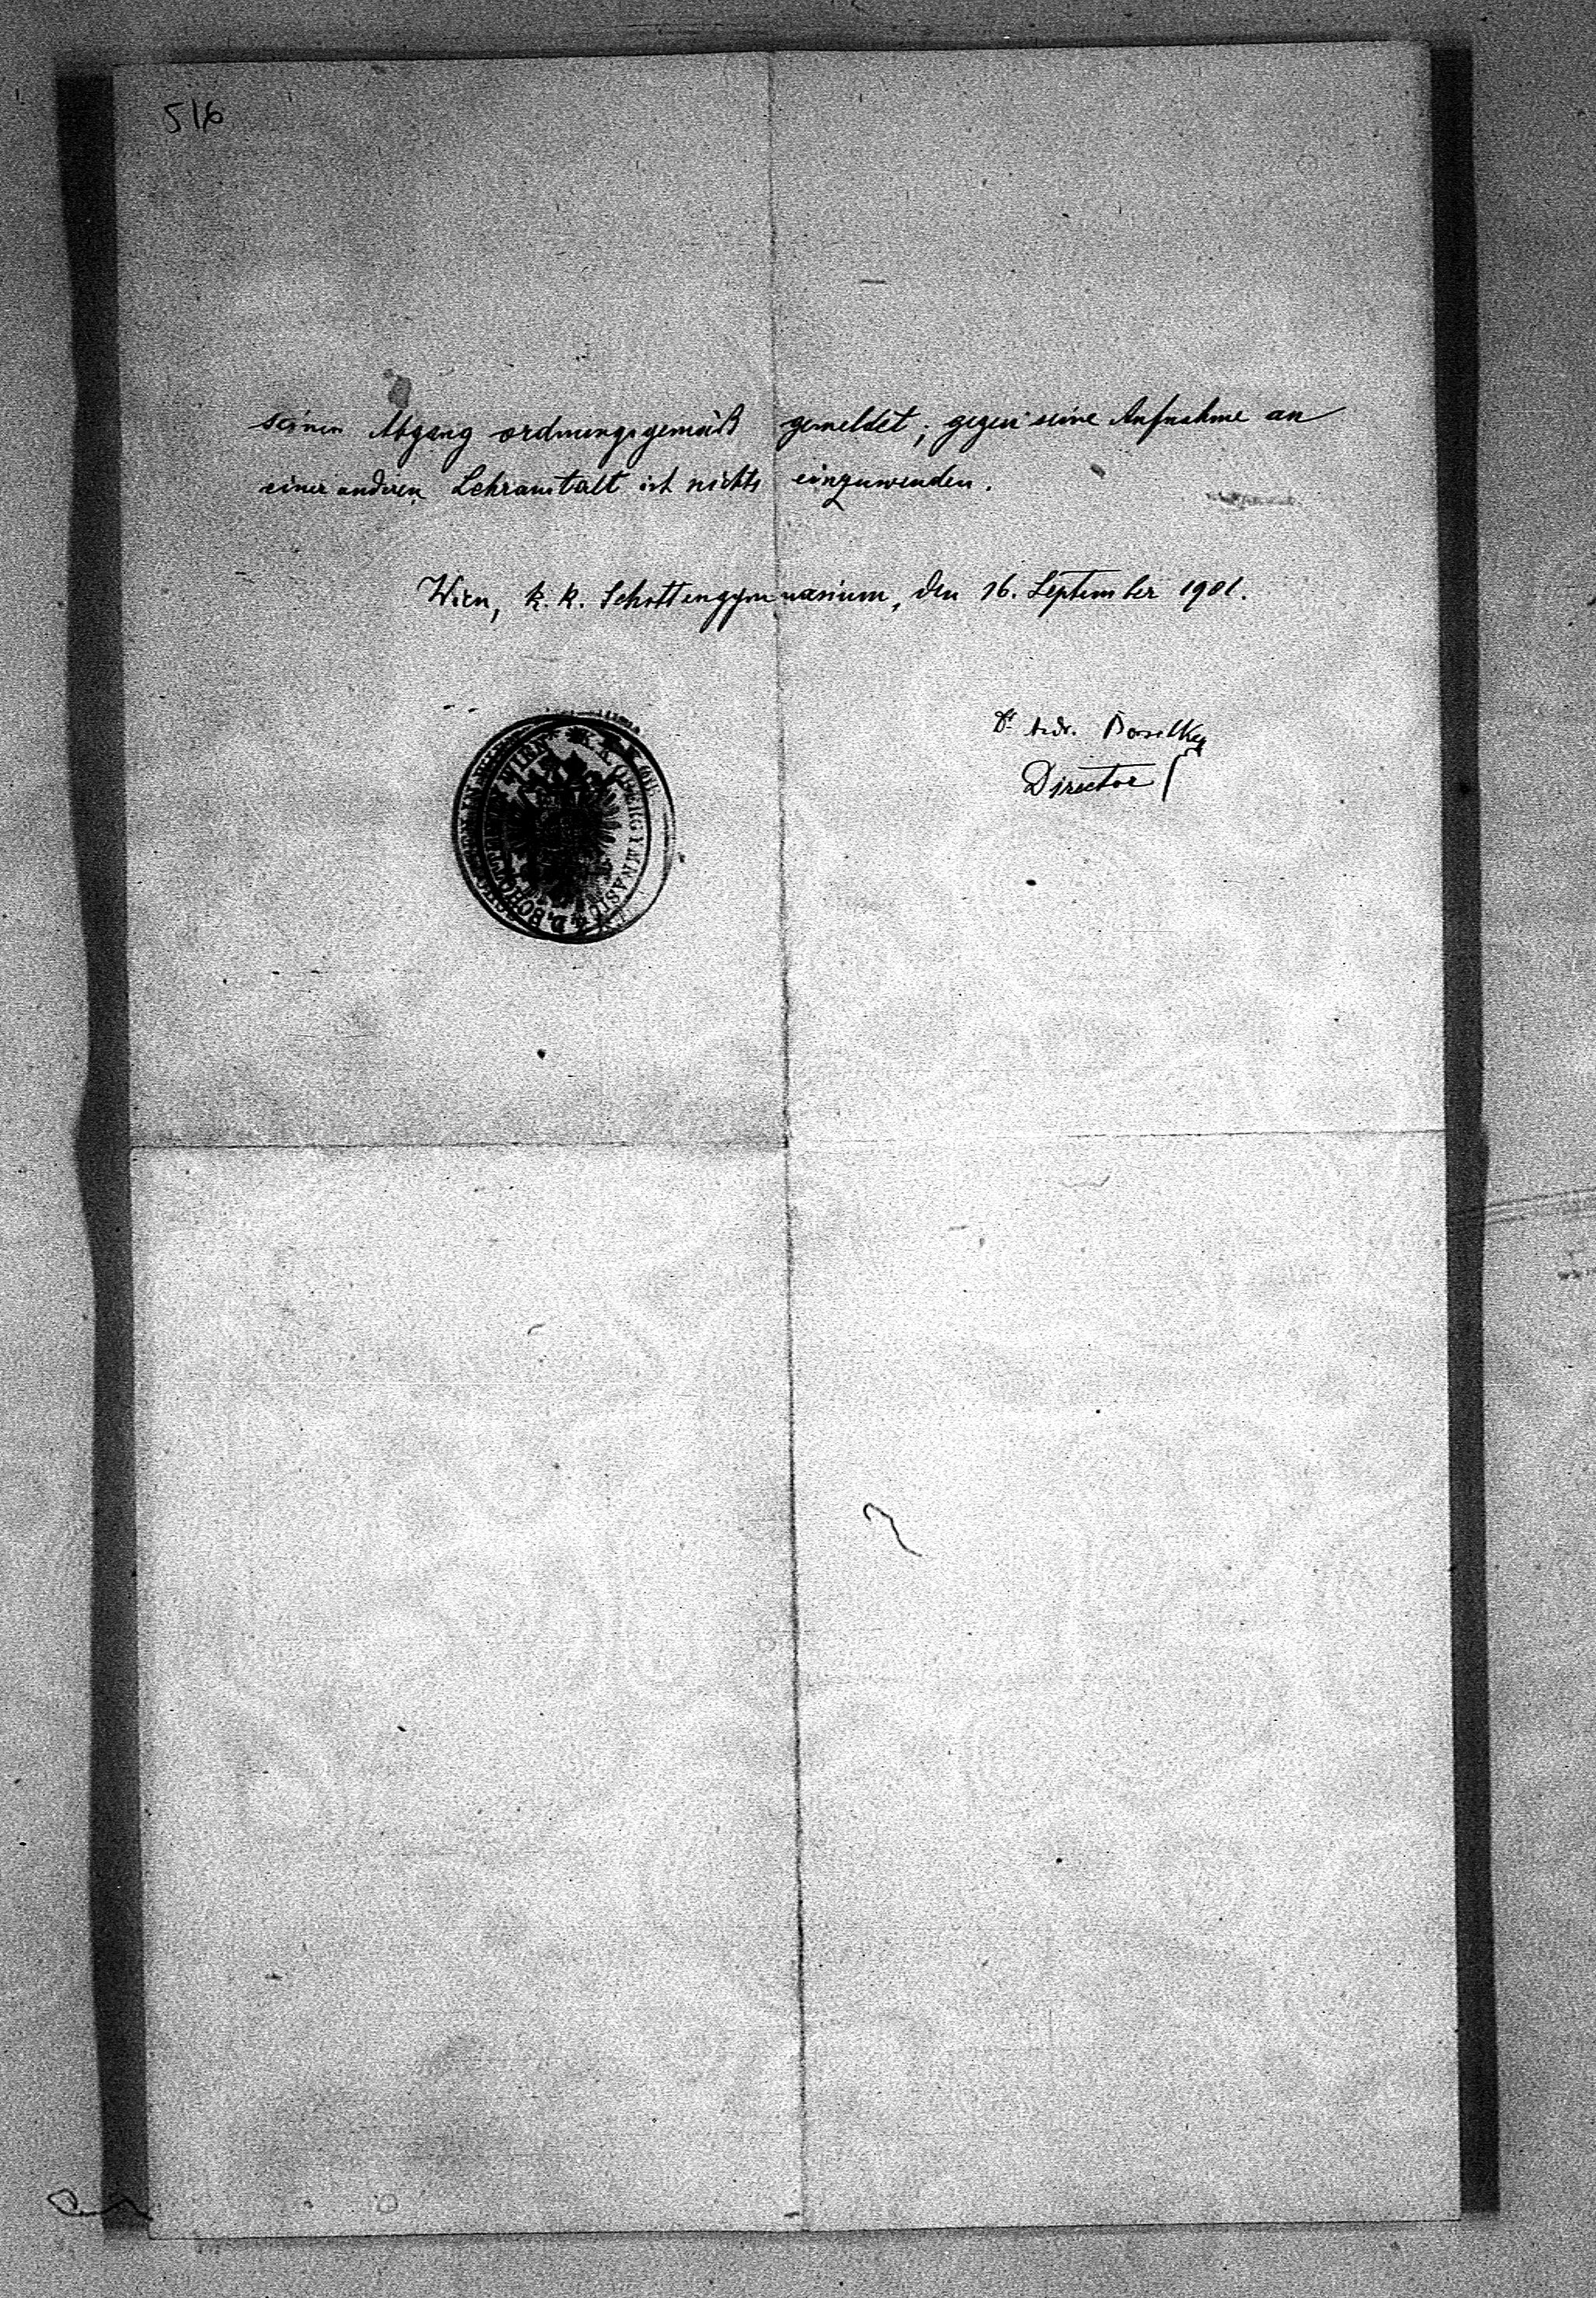 516
seinen Abgang ordnungsgemäß gemeldet; gegen seine Aufnahme an
einer anderen Lehranstalt ist nichts einzuwenden.
Wien, k. k. Schottengymnasium, den 16. September 1901.
Dr. Andr.
Director
K. K. OBERGYMNASIUM Z. D. SCHOTTEN IN WIEN